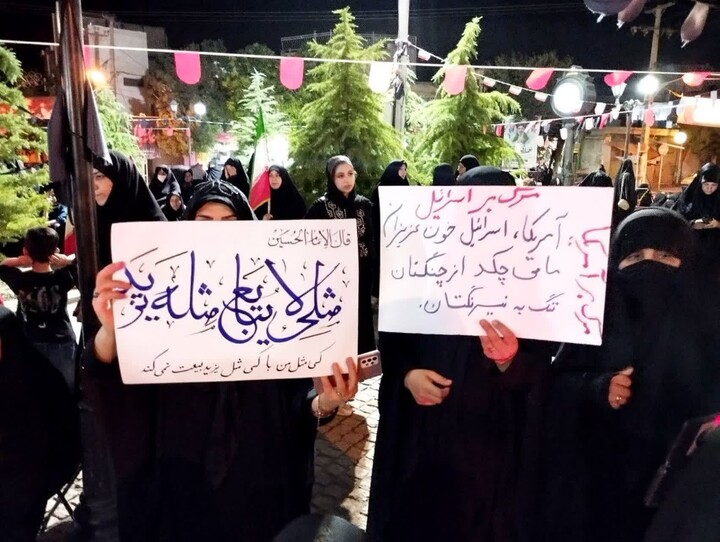 قال الامام الحسین
مثلی لا یبایع مثله یزید
کسی مثل من با کسی مثل یزید بیعت نمی کند
مرگ بر اسرائیل
آمریکا، اسرائیل خون عزیزان
ما می چکد از چنگتان
ننگ به نیرنگتان.
مرگ بر آمریکا